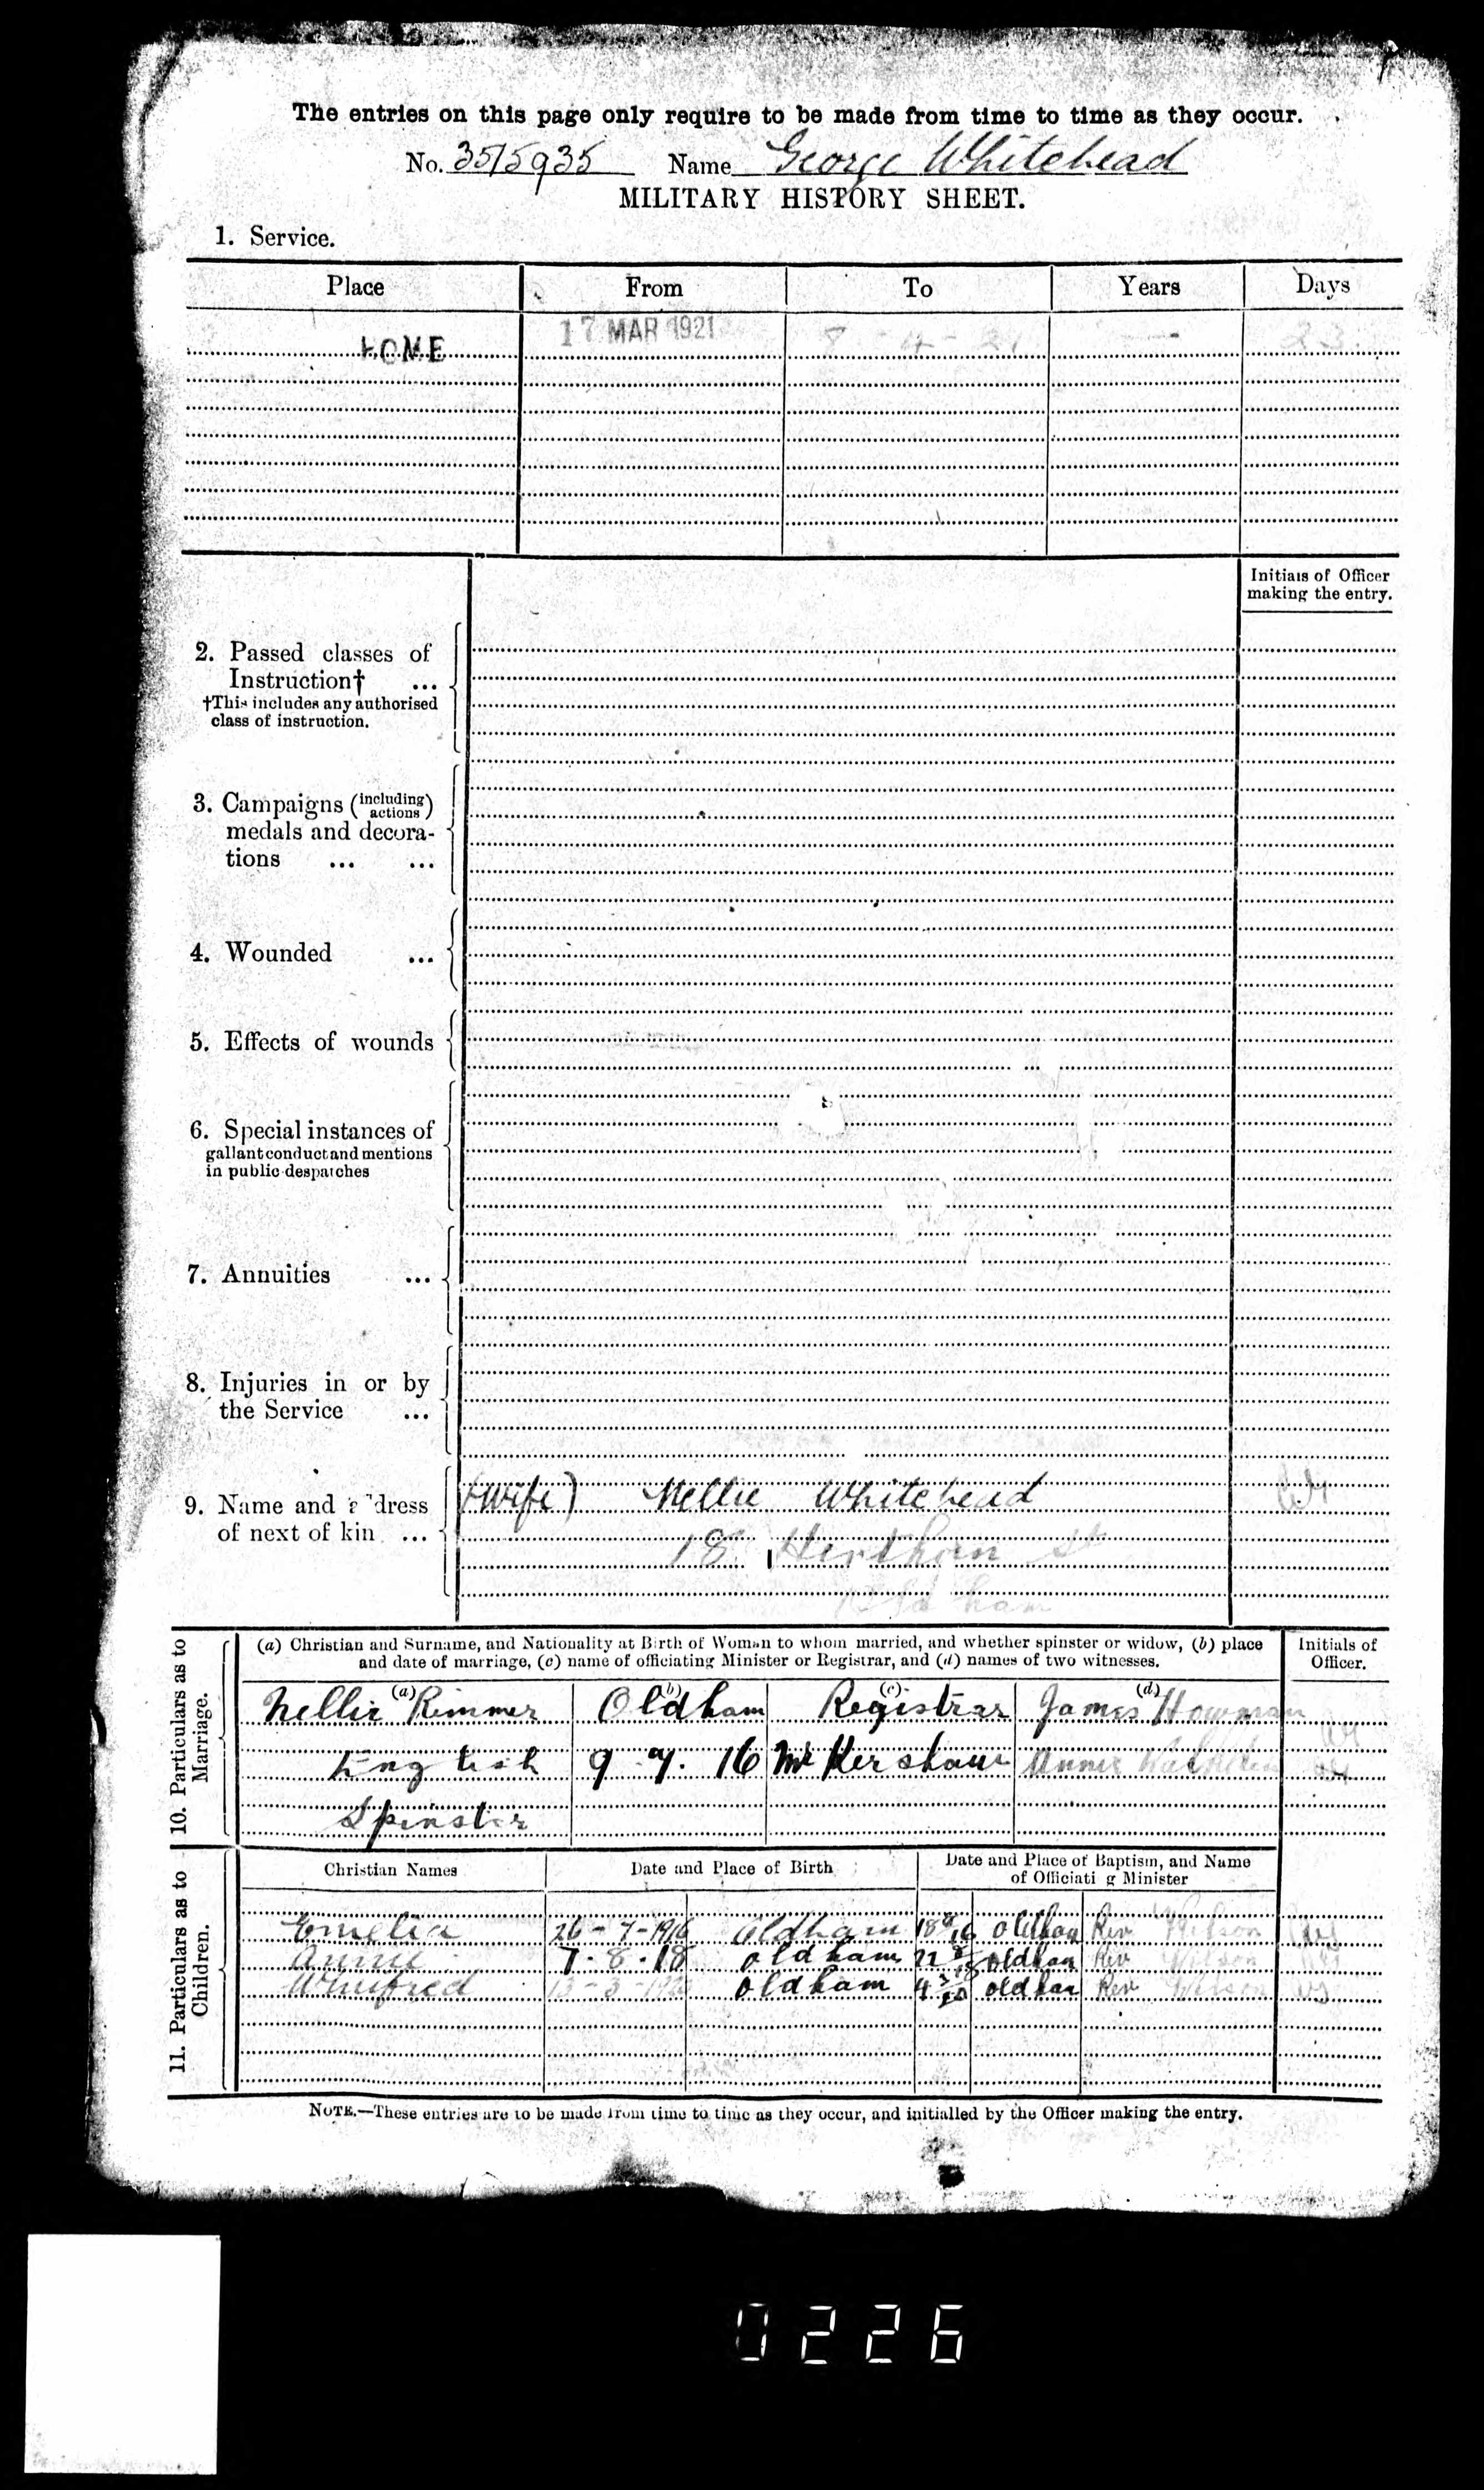 The entries on this page only require to be made from time to time as they occur.
No. 3515935 Name George Whitehead
MILITARY HISTORY SHEET.
1. Service.
Place From To Years Days
HOME 17 MAR 1921 8-4-21 — 23.
Initials of Officer
making the entry.
2. Passed classes of
Instruction† ...
†This includes any authorised
class of instruction.
3. Campaigns (including actions)
medals and decora-
tions ... ...
4. Wounded ...
5. Effects of wounds
6. Special instances of
gallant conduct and mentions
in public despatches
7. Annuities ...
8. Injuries in or by
the Service ...
9. Name and address
of next of kin ...
(Wife) Nellie Whitehead
18 St
Oldham
10. Particulars as to
Marriage.
(a) Christian and Surname, and Nationality at Birth of Woman to whom married, and whether spinster or widow, (b) place
and date of marriage, (c) name of officiating Minister or Registrar, and (d) names of two witnesses.
Initials of
Officer.
(a) (b) (c) (d)
Nellie Rimmer Oldham Registrar James Howman
English 9. 16 Mr Kershaw Annie
Spinster
11. Particulars as to
Children.
Christian Names Date and Place of Birth Date and Place of Baptism, and Name
of Officiati g Minister
Emelia 26-7-1916 Oldham 18 8 16 Oldham Rev Wilson
Annie 7-8-18 oldham 22 8 18 oldham Rev Wilson
Winifred oldham 4 20 oldham Rev Wilson
NOTE.—These entries are to be made from time to time as they occur, and initialled by the Officer making the entry.
0226